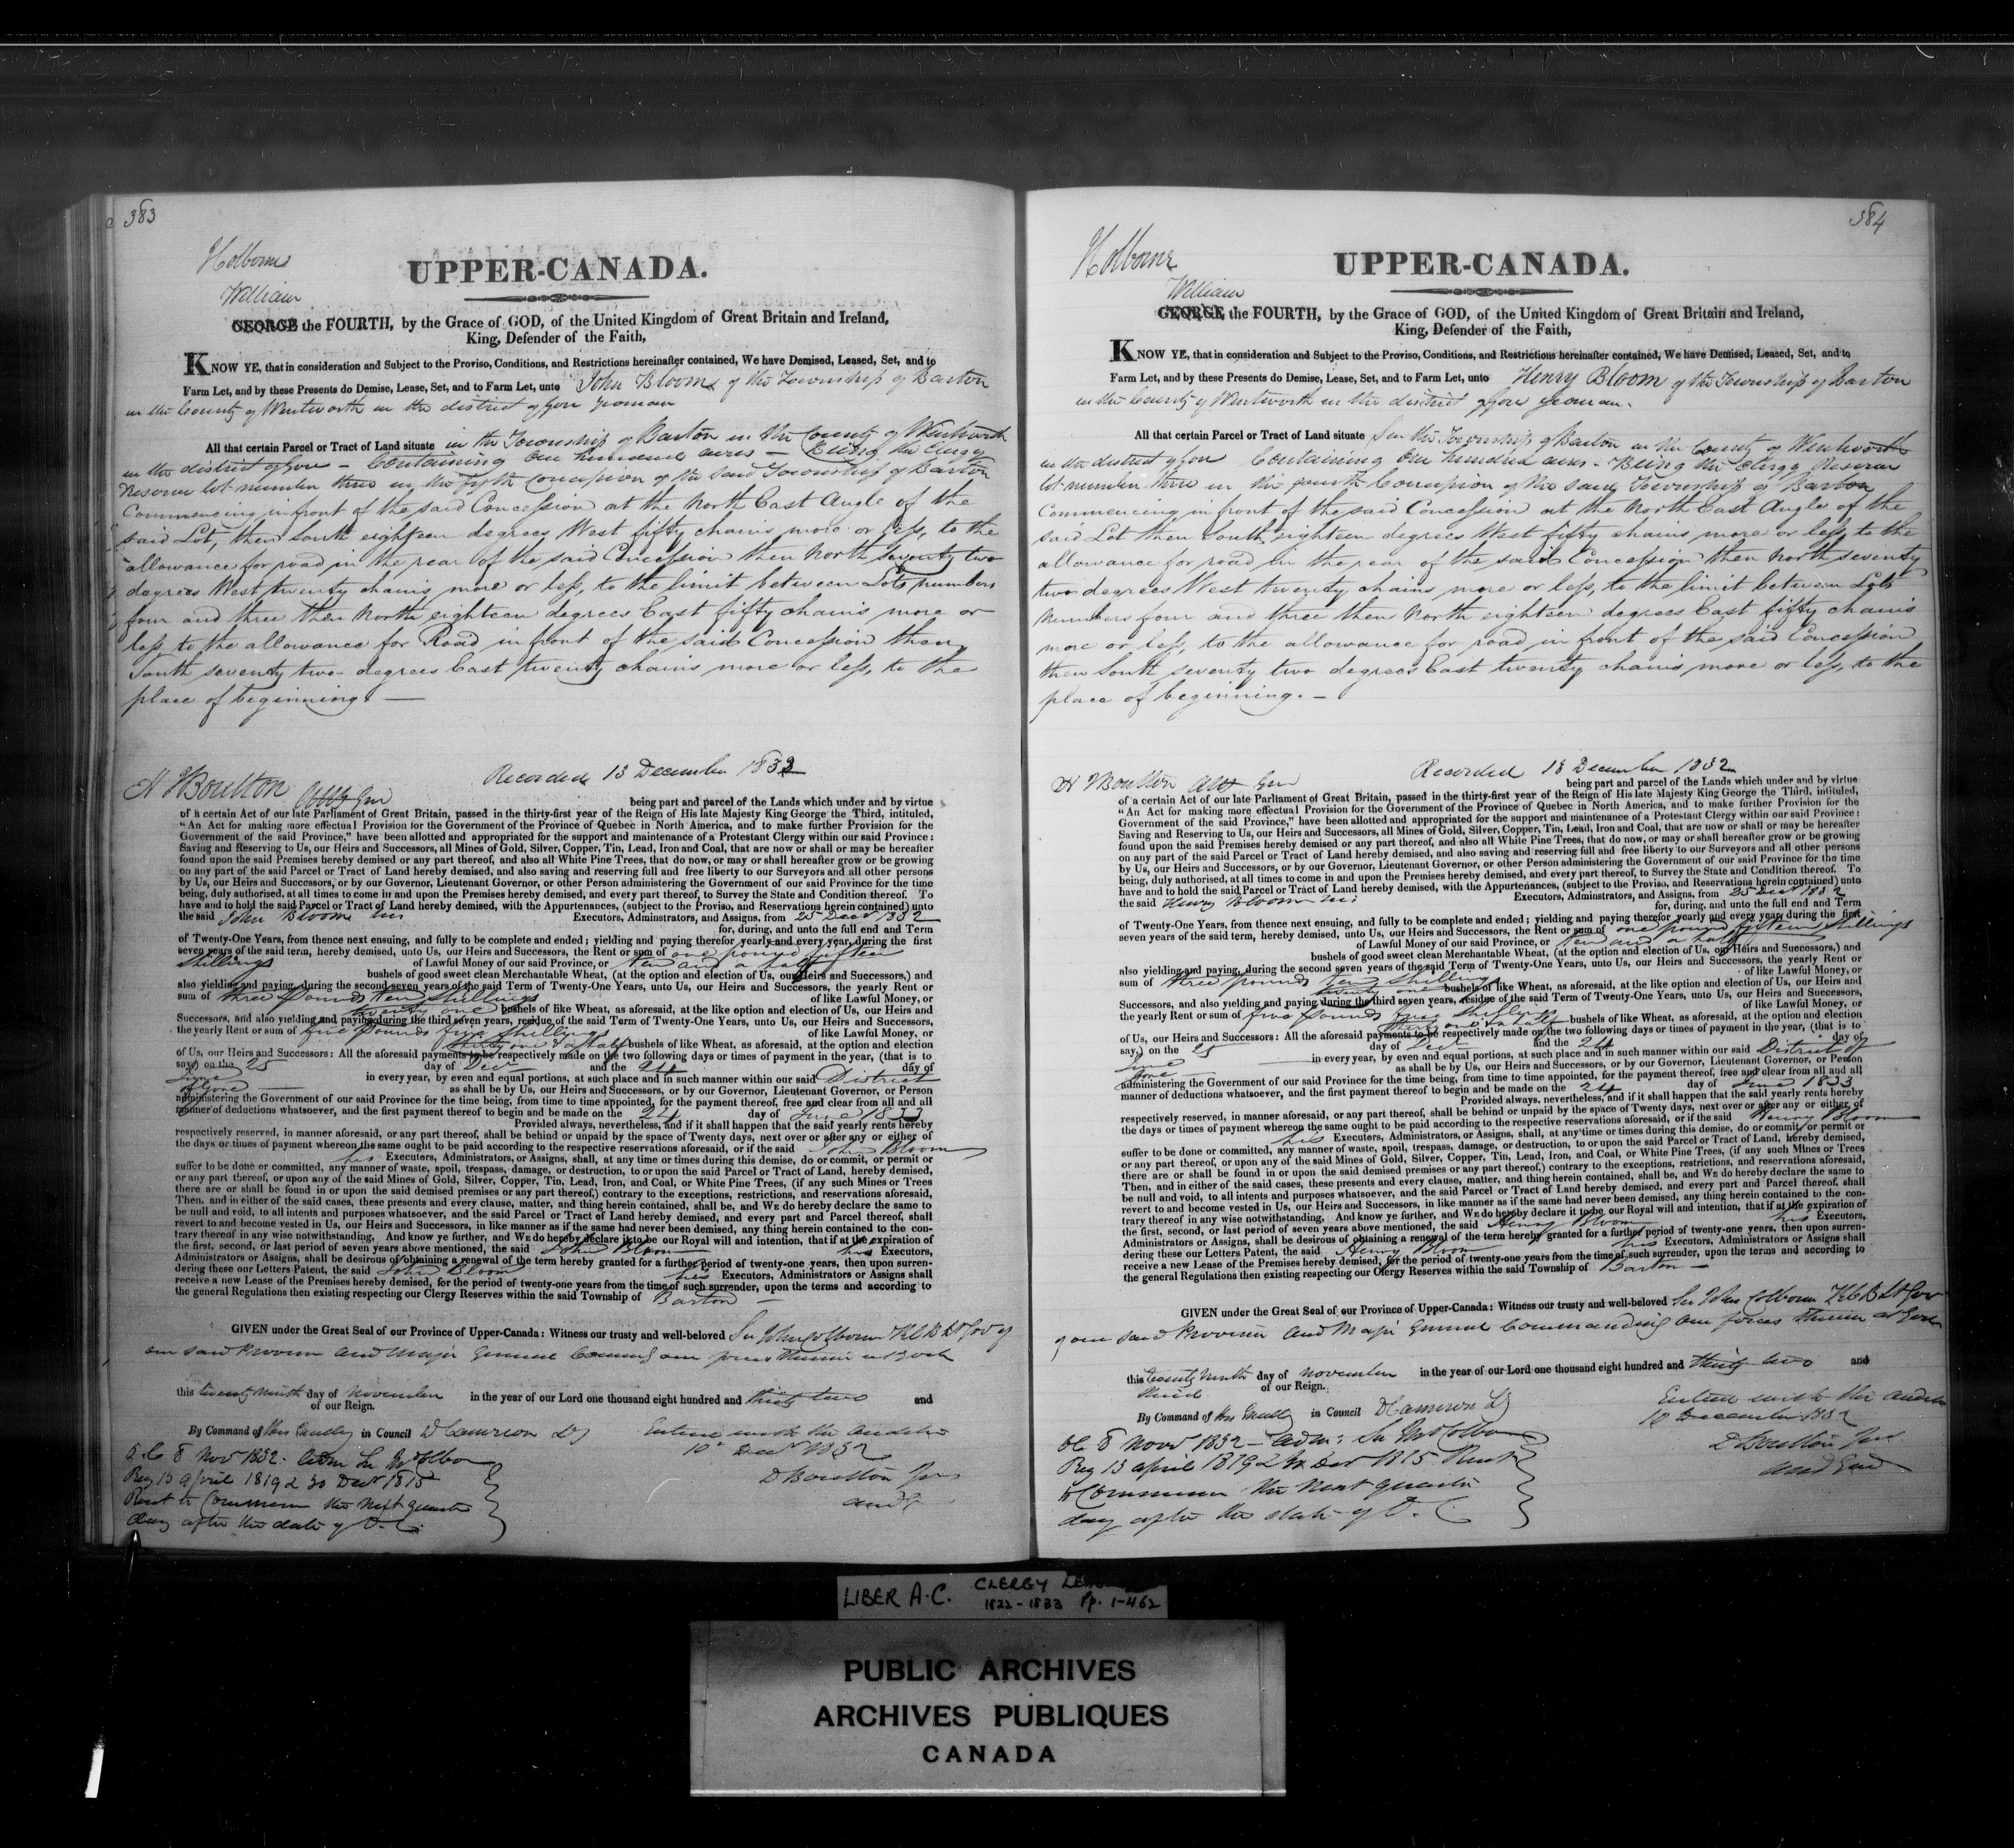 383
Colborne
UPPER-CANADA.
William
GEORGE the FOURTH, by the Grace of GOD, of the United Kingdom of Great Britain and Ireland,
King, Defender of the Faith,
KNOW YE, that in consideration and Subject to the Proviso, Conditions, and Restrictions hereinafter contained, We have Demised, Leased, Set, and to
Farm Let, and by these Presents do Demise, Lease, Set, and to Farm Let, unto John Bloom of the Township of Barton
in the County of Wentworth in the district of Gore yeoman
All that certain Parcel or Tract of Land situate in the Township of Barton in the County of Wentworth
in the district of Gore - Containing One hundred acres - Being the Clergy
Reserve lot number three in the fifth Concession of the said Township of Barton
Commencing in front of the said Concession at the North East Angle of the
said Lot, then South eighteen degrees West fifty chains more or less, to the
allowance for road in the rear of the said Concession then North seventy two
degrees West twenty chains more or less, to the limit between Lots numbers
four and three then North eighteen degrees East fifty chains more or
less to the allowance for Road in front of the said Concession then
South seventy two degrees East twenty chains more or less, to the
place of beginning. -
Recorded 13 December 1832
H Boulton Atty Gen
being part and parcel of the Lands which under and by virtue
of a certain Act of our late Parliament of Great Britain, passed in the thirty-first year of the Reign of His late Majesty King George the Third, intituled,
"An Act for making more effectual Provision for the Government of the Province of Quebec in North America, and to make further Provision for the
Government of the said Province," have been allotted and appropriated for the support and maintenance of a Protestant Clergy within our said Province:
Saving and Reserving to Us, our Heirs and Successors, all Mines of Gold, Silver, Copper, Tin, Lead, Iron and Coal, that are now or shall or may be hereafter
found upon the said Premises hereby demised or any part thereof, and also all White Pine Trees, that do now, or may or shall hereafter grow or be growing
on any part of the said Parcel or Tract of Land hereby demised, and also saving and reserving full and free liberty to our Surveyors and all other persons
by Us, our Heirs and Successors, or by our Governor, Lieutenant Governor, or other Person administering the Government of our said Province for the time
being, duly authorised, at all times to come in and upon the Premises hereby demised, and every part thereof, to Survey the State and Condition thereof. To
have and to hold the said Parcel or Tract of Land hereby demised, with the Appurtenances, (subject to the Proviso, and Reservations herein contained) unto
the said John Bloom his Executors, Adminstrators, and Assigns, from 25 Decr 1832
for, during, and unto the full end and Term
of Twenty-One Years, from thence next ensuing, and fully to be complete and ended; yielding and paying therefor yearly and every year, during the first
seven years of the said term, hereby demised, unto Us, our Heirs and Successors, the Rent or sum of one pound fifteen
shillings of Lawful Money of our said Province, or ten and a half
bushels of good sweet clean Merchantable Wheat, (at the option and election of Us, our Heirs and Successors,) and
also yielding and paying, during the second seven years of the said Term of Twenty-One Years, unto Us, our Heirs and Successors, the yearly Rent or
sum of three pounds ten shillings of like Lawful Money, or
twenty one bushels of like Wheat, as aforesaid, at the like option and election of Us, our Heirs and
Successors, and also yielding and paying during the third seven years, residue of the said Term of Twenty-One Years, unto Us, our Heirs and Successors,
the yearly Rent or sum of five pounds five shillings of like Lawful Money, or
thirty one & a half bushels of like Wheat, as aforesaid, at the option and election
of Us, our Heirs and Successors: All the aforesaid payments to be respectively made on the two following days or times of payment in the year, (that is to
say,) on the 25 day of Decr and the 24 day of
June in every year, by even and equal portions, at such place and in such manner within our said District
of Gore as shall be by Us, our Heirs and Successors, or by our Governor, Lieutenant Governor, or Person
administering the Government of our said Province for the time being, from time to time appointed, for the payment thereof, free and clear from all and all
manner of deductions whatsoever, and the first payment thereof to begin and be made on the 24 day of June 1833
Provided always, nevertheless, and if it shall happen that the said yearly rents hereby
respectively reserved, in manner aforesaid, or any part thereof, shall be behind or unpaid by the space of Twenty days, next over or after any or either of
the days or times of payment whereon the same ought to be paid according to the respective reservations aforesaid, or if the said John Bloom
his Executors, Administrators, or Assigns, shall, at any time or times during this demise, do or commit, or permit or
suffer to be done or committed, any manner of waste, spoil, trespass, damage, or destruction, to or upon the said Parcel or Tract of Land, hereby demised,
or any part thereof, or upon any of the said Mines of Gold, Silver, Copper, Tin, Lead, Iron, and Coal, or White Pine Trees, (if any such Mines or Trees
there are or shall be found in or upon the said demised premises or any part thereof,) contrary to the exceptions, restrictions, and reservations aforesaid,
Then, and in either of the said cases, these presents and every clause, matter, and thing herein contained, shall be, and WE do hereby declare the same to
be null and void, to all intents and purposes whatsoever, and the said Parcel or Tract of Land hereby demised, and every part and Parcel thereof, shall
revert to and become vested in Us, our Heirs and Successors, in like manner as if the same had never been demised, any thing herein contained to the con-
trary thereof in any wise notwithstanding. And know ye further, and WE do hereby declare it to be our Royal will and intention, that if at the expiration of
the first, second, or last period of seven years above mentioned, the said John Bloom his Executors,
Administrators or Assigns, shall be desirous of obtaining a renewal of the term hereby granted for a further period of twenty-one years, then upon surren-
dering these our Letters Patent, the said John Bloom his Executors, Administrators or Assigns shall
receive a new Lease of the Premises hereby demised, for the period of twenty-one years from the time of such surrender, upon the terms and according to
the general Regulations then existing respecting our Clergy Reserves within the said Township of Barton -
GIVEN under the Great Seal of our Province of Upper-Canada: Witness our trusty and well-beloved Sir John Colborne K.C.B Lt Gov of
our said Province and Major General Command our forces therein
this twenty ninth day of November in the year of our Lord one thousand eight hundred and thirty two and
of our Reign.
By Command of His Excelly in Council D Cameron Entered with the Auditor
10 Decr 1832
O.C. 8 Novr 1832. Adm Sir Jno Colborne D Boulton Junr
Reg 13 april 1819 & 30 Decr 1815 Audr
Rent to Commence the next quarter
day after the date of O.C.
384
Colborne
UPPER-CANADA.
William
GEORGE the FOURTH, by the Grace of GOD, of the United Kingdom of Great Britain and Ireland,
King, Defender of the Faith,
KNOW YE, that in consideration and Subject to the Proviso, Conditions, and Restrictions hereinafter contained, We have Demised, Leased, Set, and to
Farm Let, and by these Presents do Demise, Lease, Set, and to Farm Let, unto Henry Bloom of the Township of Barton
in the County of Wentworth in the district of Gore yeoman.
All that certain Parcel or Tract of Land situate in the Township of Barton in the County of Wentworth
in the district of Gore Containing One hundred acres - Being the Clergy Reserve
lot number three in the fourth Concession of the said Township of Barton
Commencing in front of the said Concession at the North East Angle of the
said Lot then South eighteen degrees West fifty chains more or less, to the
allowance for road in the rear of the said Concession then North seventy
two degrees West twenty chains more or less, to the limit between Lots
numbers four and three then North eighteen degrees East fifty chains
more or less, to the allowance for road in front of the said Concession
then South seventy two degrees East twenty chains more or less, to the
place of beginning. -
Recorded 13 December 1832
H Boulton Atty Gen
being part and parcel of the Lands which under and by virtue
of a certain Act of our late Parliament of Great Britain, passed in the thirty-first year of the Reign of His late Majesty King George the Third, intituled,
"An Act for making more effectual Provision for the Government of the Province of Quebec in North America, and to make further Provision for the
Government of the said Province," have been allotted and appropriated for the support and maintenance of a Protestant Clergy within our said Province:
Saving and Reserving to Us, our Heirs and Successors, all Mines of Gold, Silver, Copper, Tin, Lead, Iron and Coal, that are now or shall or may be hereafter
found upon the said Premises hereby demised or any part thereof, and also all White Pine Trees, that do now, or may or shall hereafter grow or be growing
on any part of the said Parcel or Tract of Land hereby demised, and also saving and reserving full and free liberty to our Surveyors and all other persons
by Us, our Heirs and Successors, or by our Governor, Lieutenant Governor, or other Person administering the Government of our said Province for the time
being, duly authorised, at all times to come in and upon the Premises hereby demised, and every part thereof, to Survey the State and Condition thereof. To
have and to hold the said Parcel or Tract of Land hereby demised, with the Appurtenances, (subject to the Proviso, and Reservations herein contained) unto
the said Henry Bloom his Executors, Adminstrators, and Assigns, from 25 Decr 1832
for, during, and unto the full end and Term
of Twenty-One Years, from thence next ensuing, and fully to be complete and ended; yielding and paying therefor yearly and every year, during the first
seven years of the said term, hereby demised, unto Us, our Heirs and Successors, the Rent or sum of one pound fifteen shillings
of Lawful Money of our said Province, or ten and a half
bushels of good sweet clean Merchantable Wheat, (at the option and election of Us, our Heirs and Successors,) and
also yielding and paying, during the second seven years of the said Term of Twenty-One Years, unto Us, our Heirs and Successors, the yearly Rent or
sum of three pounds ten shillings of like Lawful Money, or
twenty one bushels of like Wheat, as aforesaid, at the like option and election of Us, our Heirs and
Successors, and also yielding and paying during the third seven years, residue of the said Term of Twenty-One Years, unto Us, our Heirs and Successors,
the yearly Rent or sum of five pounds five shillings of like Lawful Money, or
thirty one & a half bushels of like Wheat, as aforesaid, at the option and election
of Us, our Heirs and Successors: All the aforesaid payments to be respectively made on the two following days or times of payment in the year, (that is to
say,) on the 25 day of Decr and the 24 day of
June in every year, by even and equal portions, at such place and in such manner within our said District of
Gore as shall be by Us, our Heirs and Successors, or by our Governor, Lieutenant Governor, or Person
administering the Government of our said Province for the time being, from time to time appointed, for the payment thereof, free and clear from all and all
manner of deductions whatsoever, and the first payment thereof to begin and be made on the 24 day of June 1833
Provided always, nevertheless, and if it shall happen that the said yearly rents hereby
respectively reserved, in manner aforesaid, or any part thereof, shall be behind or unpaid by the space of Twenty days, next over or after any or either of
the days or times of payment whereon the same ought to be paid according to the respective reservations aforesaid, or if the said Henry Bloom
his Executors, Administrators, or Assigns, shall, at any time or times during this demise, do or commit, or permit or
suffer to be done or committed, any manner of waste, spoil, trespass, damage, or destruction, to or upon the said Parcel or Tract of Land, hereby demised,
or any part thereof, or upon any of the said Mines of Gold, Silver, Copper, Tin, Lead, Iron, and Coal, or White Pine Trees, (if any such Mines or Trees
there are or shall be found in or upon the said demised premises or any part thereof,) contrary to the exceptions, restrictions, and reservations aforesaid,
Then, and in either of the said cases, these presents and every clause, matter, and thing herein contained, shall be, and WE do hereby declare the same to
be null and void, to all intents and purposes whatsoever, and the said Parcel or Tract of Land hereby demised, and every part and Parcel thereof, shall
revert to and become vested in Us, our Heirs and Successors, in like manner as if the same had never been demised, any thing herein contained to the con-
trary thereof in any wise notwithstanding. And know ye further, and WE do hereby declare it to be our Royal will and intention, that if at the expiration of
the first, second, or last period of seven years above mentioned, the said Henry Bloom his Executors,
Administrators or Assigns, shall be desirous of obtaining a renewal of the term hereby granted for a further period of twenty-one years, then upon surren-
dering these our Letters Patent, the said Henry Bloom his Executors, Administrators or Assigns shall
receive a new Lease of the Premises hereby demised, for the period of twenty-one years from the time of such surrender, upon the terms and according to
the general Regulations then existing respecting our Clergy Reserves within the said Township of Barton -
GIVEN under the Great Seal of our Province of Upper-Canada: Witness our trusty and well-beloved Sir John Colborne K.C.B Lt Gov
of our said Province and Major General Commanding our forces therein
this twenty ninth day of November in the year of our Lord one thousand eight hundred and thirty two and
third of our Reign.
By Command of His Excelly in Council D Cameron Entered with the Auditor
10 December 1832
O.C. 8 Novr 1832 - Adm: Sir Jno Colborne D Boulton Junr
Reg 13 april 1819 & 30 Decr 1815 Rent Aud Genl
to Commence the next quarter
day after the date of O.C.
LIBER A.C. CLERGY
1822-1833 Pp. 1-462
PUBLIC ARCHIVES
ARCHIVES PUBLIQUES
CANADA